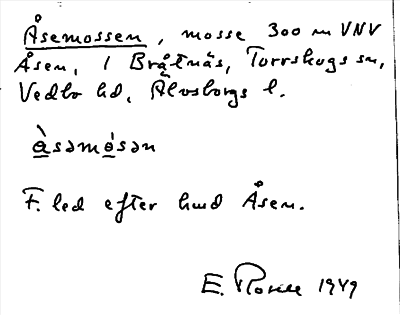 Åsemossen, mosse 300 m VNV
Åsen, i Bråtnäs, Torrskogs sn,
Vedbo hd, Älvsborgs l.
å̀səmo̊́sən
F. led efter hmd Åsen.
E. 1949